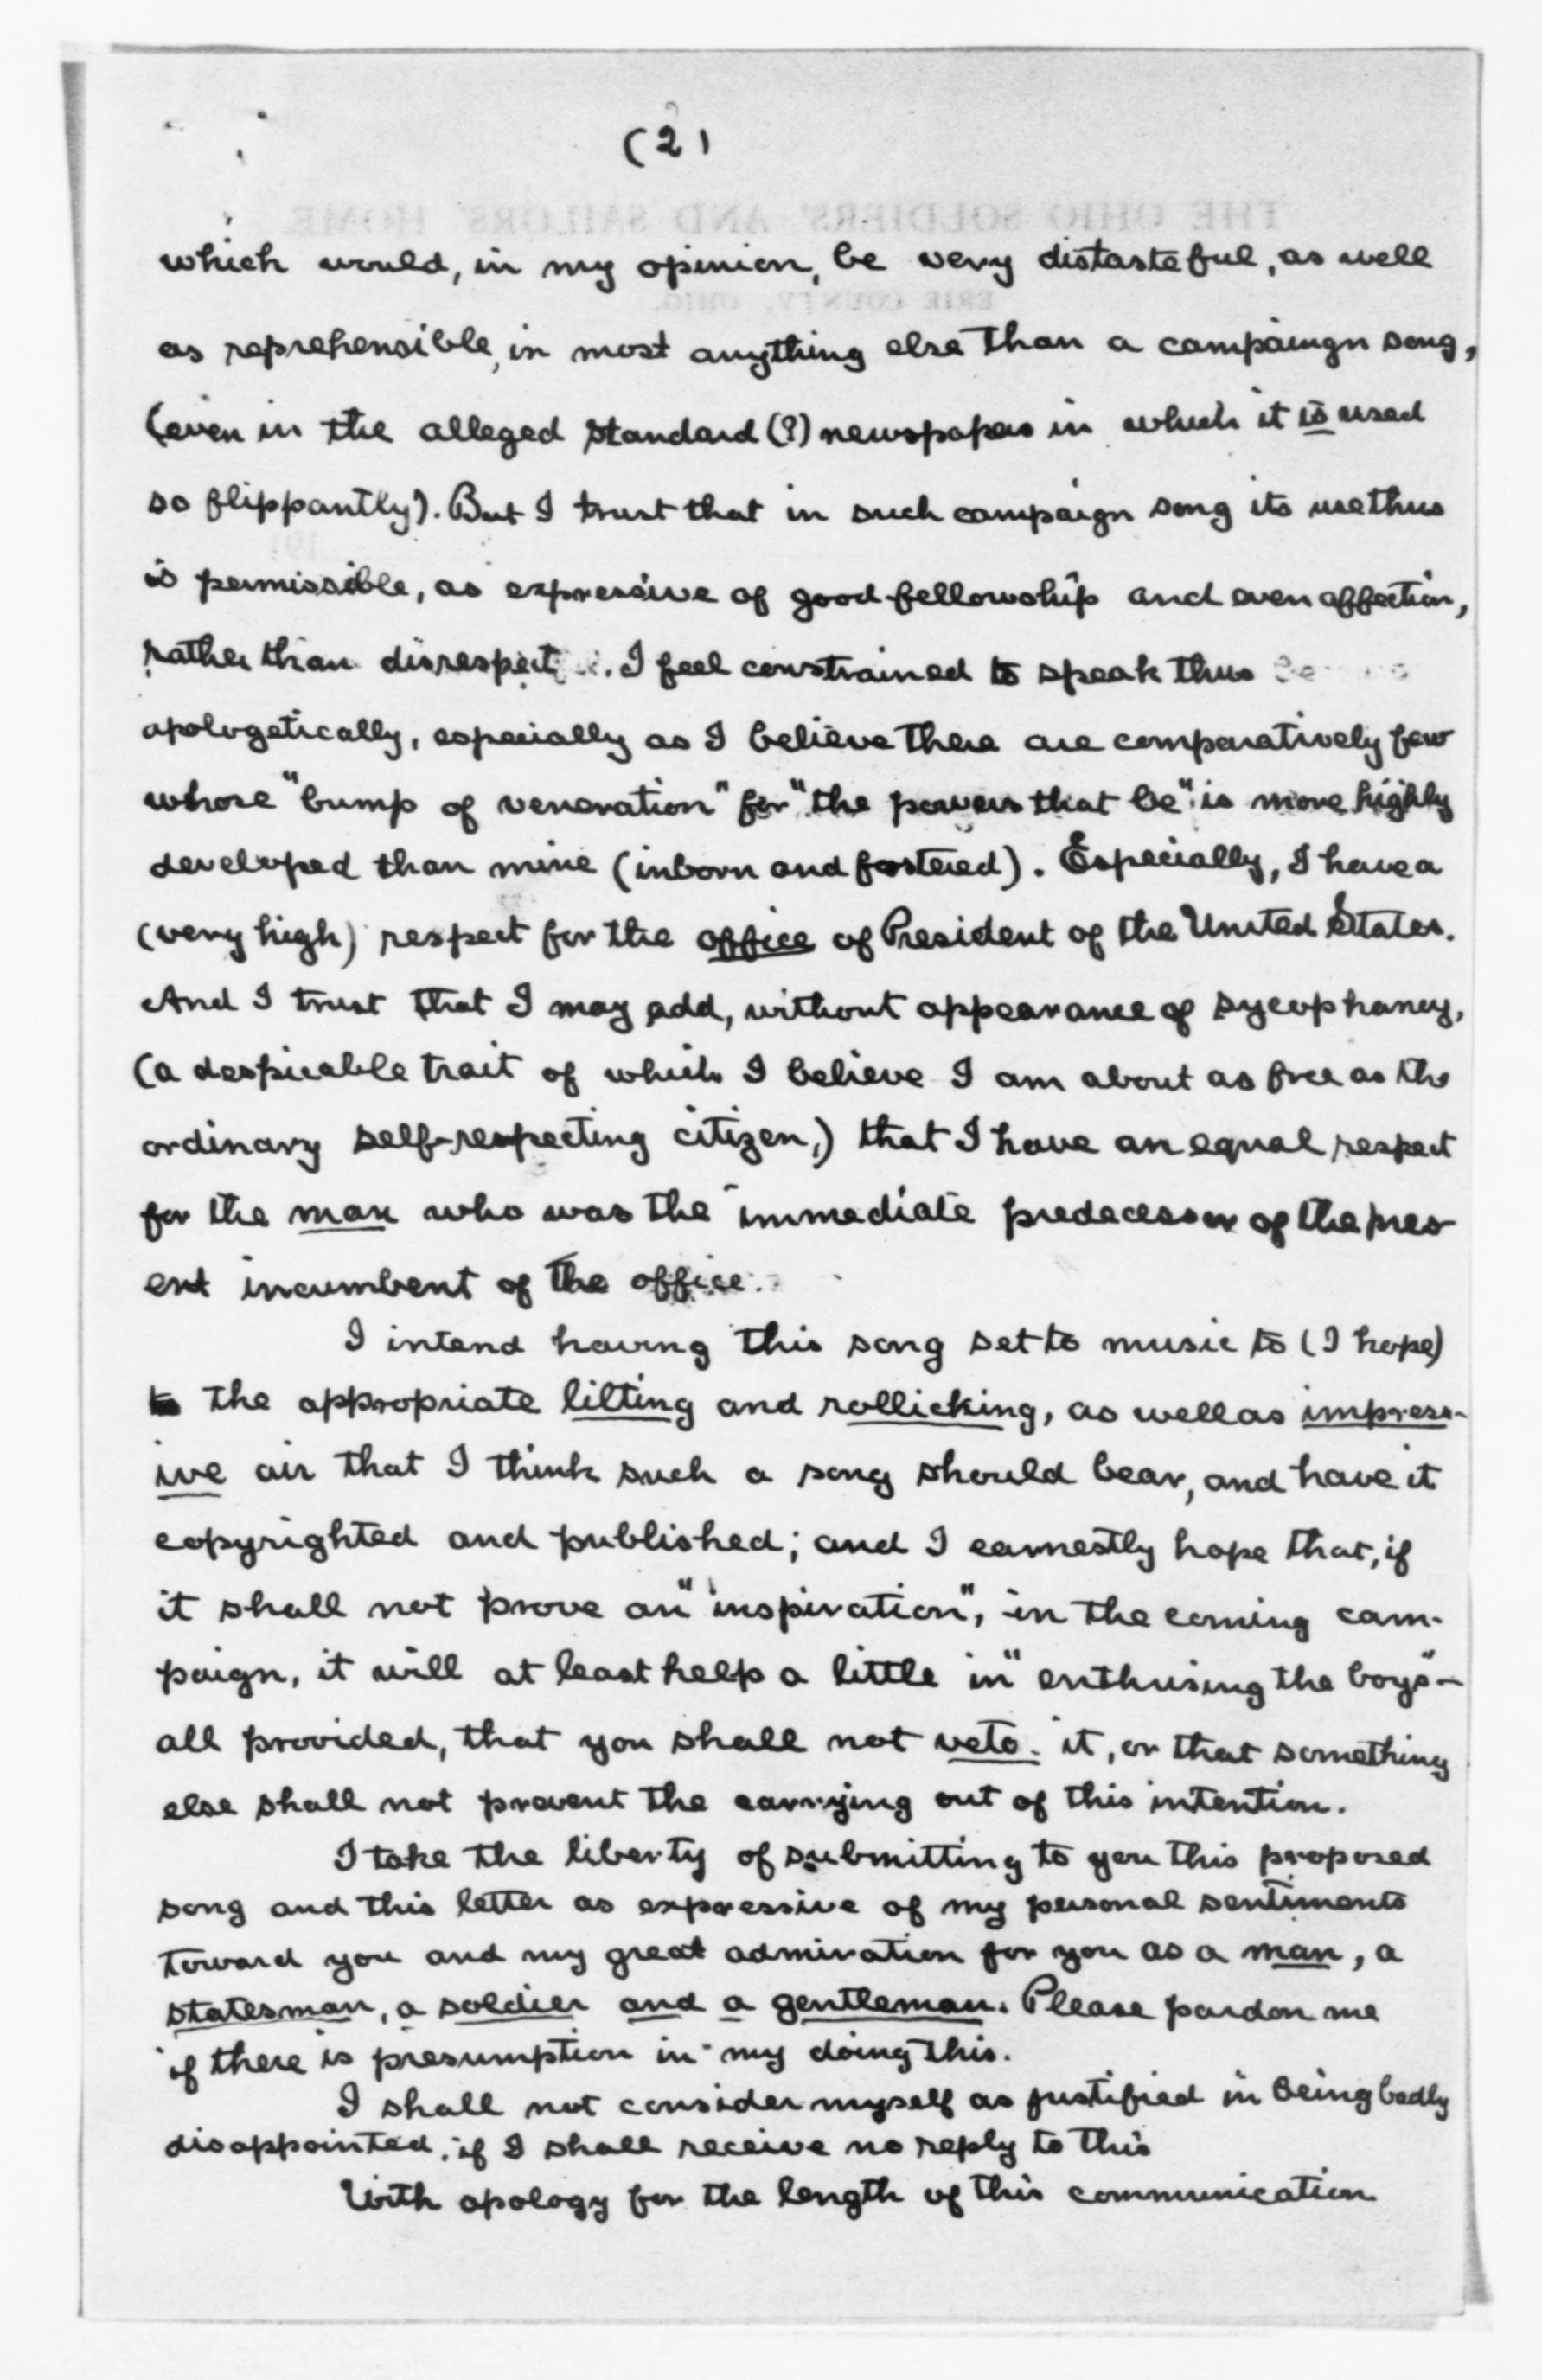 (2)
which would, in my opinion, be very distasteful, as well
as reprehensible, in most anything else than a campaingn song,
(even in the alleged standard (?) newspapers in which it is used
so flippantly). But I trust that in such campaign song its use thus
is permissible, as expressive of good-fellowship and even affection,
rather than disrespect. I feel constrained to speak thus
apologetically, especially as I believe there are comparatively few
whose "bump of veneration" for "the powers that be" is more highly
developed than mine (inborn and fostered). Especially, I have a
(very high) respect for the office of President of the United States.
And I trust that I may add, without appearance of sycophancy,
(a despicable trait of which I believe I am about as free as the
ordinary self-respecting citizen,) that I have an equal respect
for the man who was the immediate predecessor of the pres
ent incumbent of the office.
I intend having this song set to music to (I hope)
the appropriate lilting and rollicking, as well as impress-
ive air that I think such a song should bear, and have it
copyrighted and published; and I earnestly hope that, if
it shall not prove an "inspiration", in the coming cam-
paign, it will at least help a little in "enthusing the boys"—
all provided, that you shall not veto it, or that something
else shall not prevent the carrying out of this intention.
I take the liberty of submitting to you this proposed
song and this letter as expressive of my personal sentiments
toward you and my great admiration for you as a man, a
statesman, a soldier and a gentleman. Please pardon me
if there is presumption in my doing this.
I shall not consider myself as justified in being badly
disappointed, if I shall receive no reply to this
With apology for the length of this communication
THE OHIO SOLDIERS' AND SAILORS' HOME
ERIE COUNTY, OHIO.
191